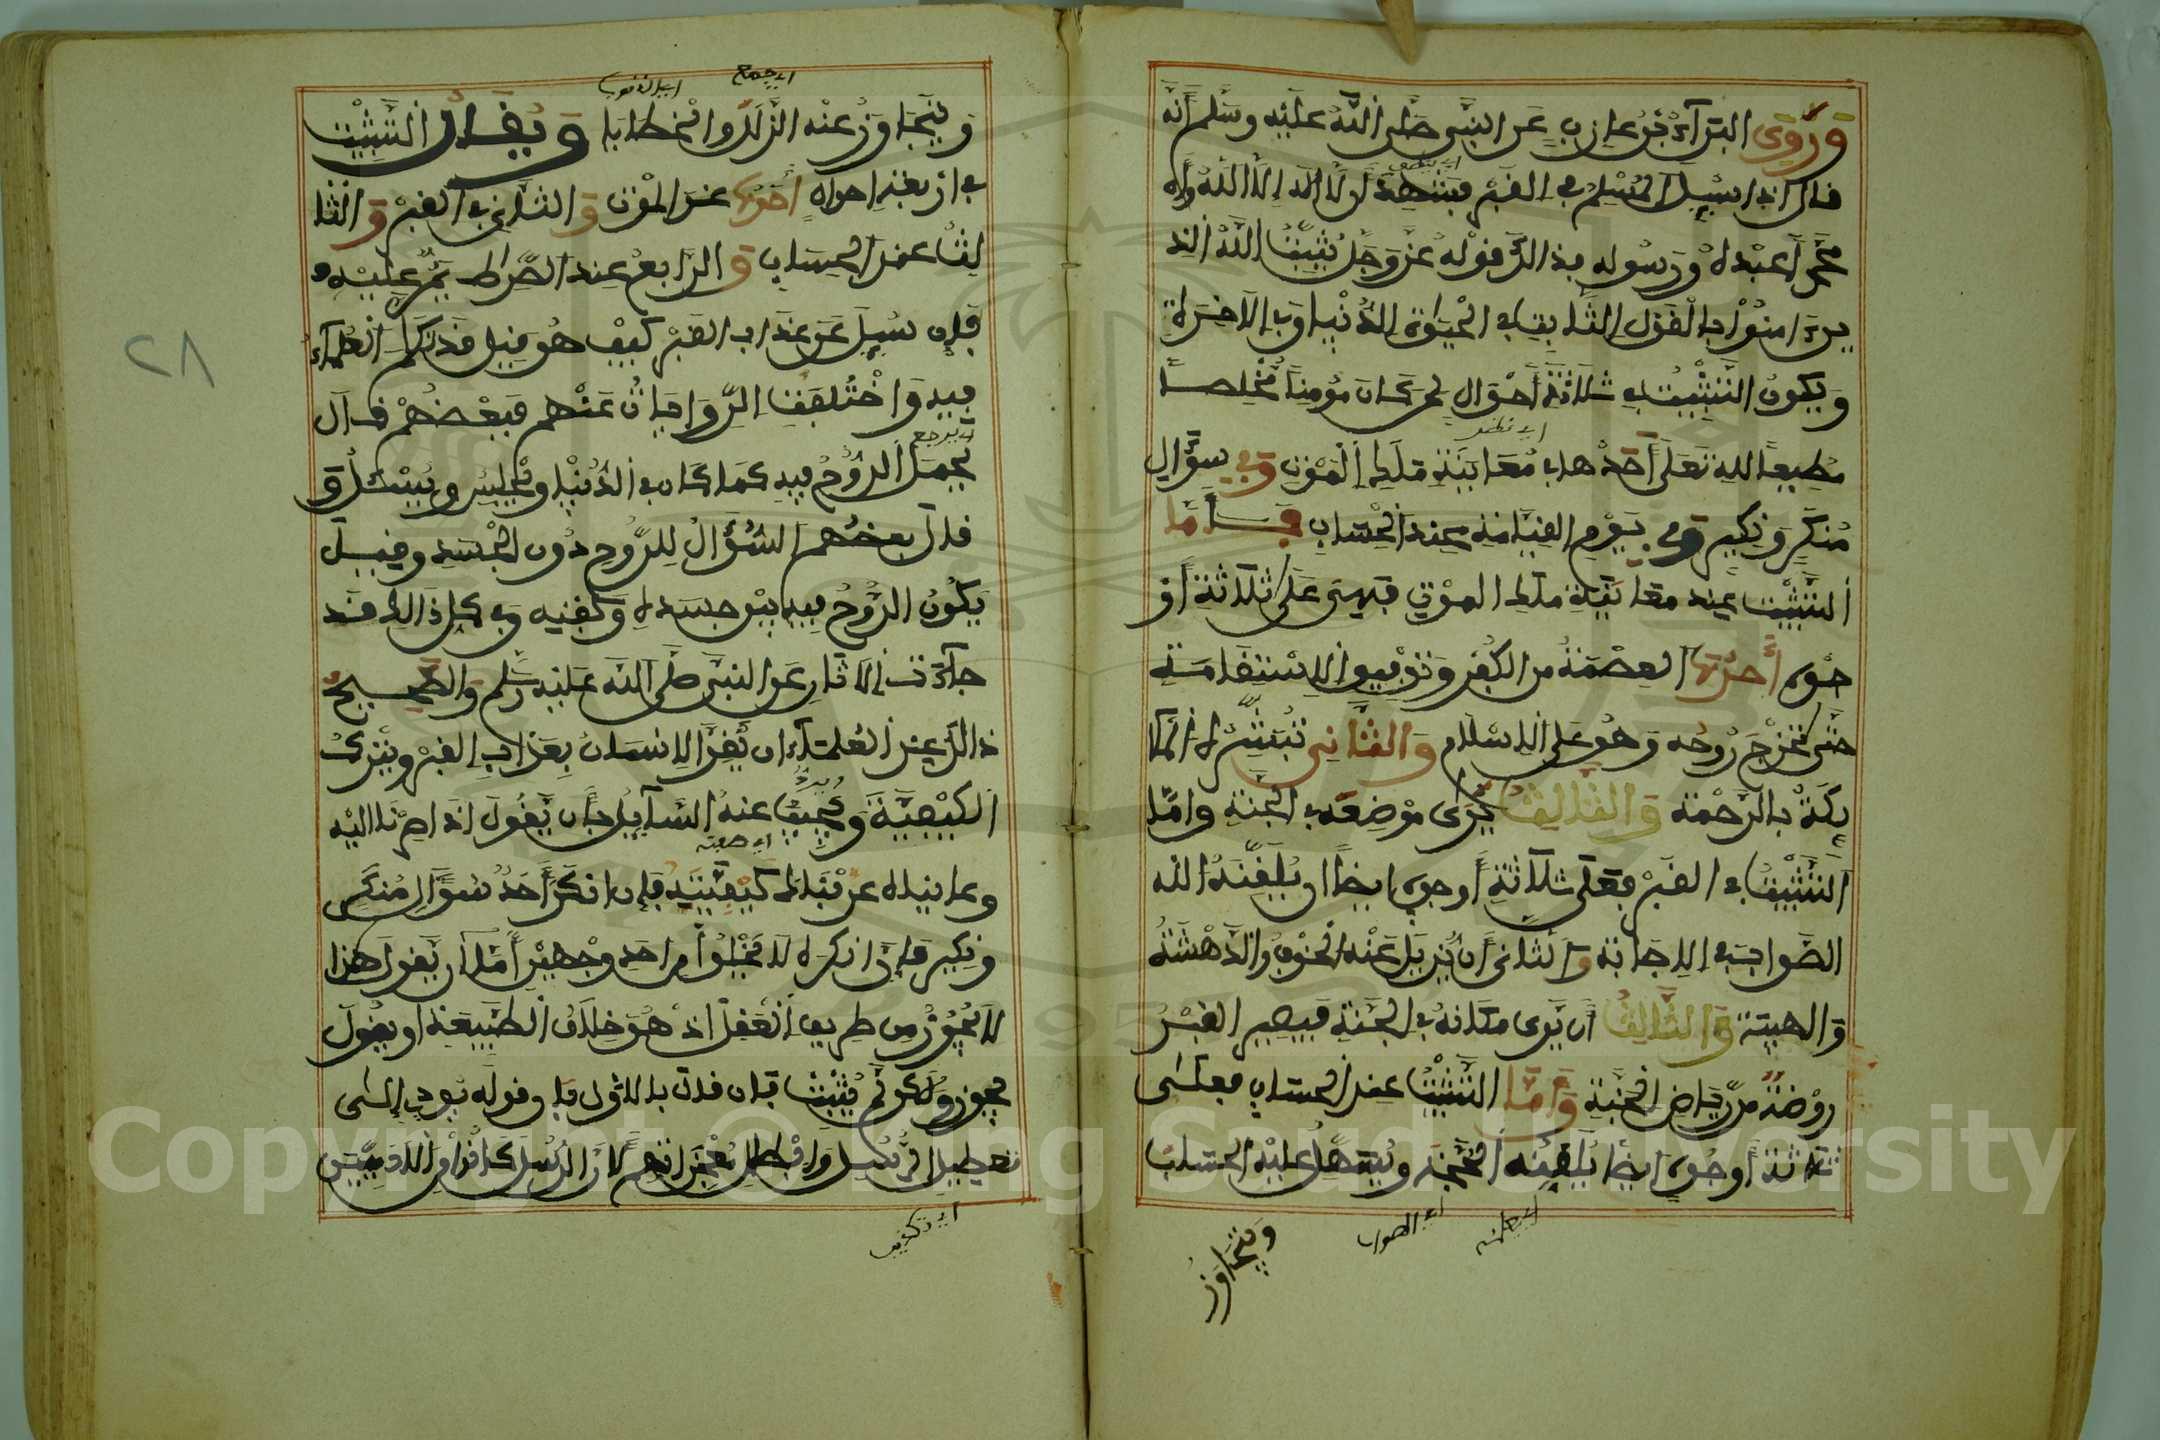 وروى البرآء بن عازب عن النبي صلى الله عليه وسلم أنه
قال اذا سئل المسلم في القبر فيشهد أن لا اله إلا الله وأن
محمدا عبده ورسوله فذالك قوله عز وجل يثبت الله الذ
ين ءامنوا بالقول الثابت في الحيوة الدنيا وفي الاخرة
ويكون التثبيت في ثلاثة أحوال لمن كان مؤمنا مخلصا
مطيعا لله تعلى أحدها في معاينة ملك الموت وفي سؤال
منكر ونكير وفي يوم القيامة عند الحساب فأما
التثبيت عند معاينة ملك الموت فهي على ثلاثة أو
جه أحدها العصمة من الكفر وتوفيق الاستقامة
حتى تخرج روحه وهو على الاسلام والثاني تبشره الملا
ئكة بالرحمة والثالث يرى موضعه في الجنة وامّا
التثبيت في القبر فعلى ثلاثة أوجه ايضا ان يلقنه الله
الصواب في الاجابة والثاني أن يزيل عنه الخوف والدهشة
والهيبة والثالث أن يرى مكانه في الجنة فيصير القبر
روضة من رياض الجنة وأما التثبيت عند الحساب فعلى
ثلاثة أوجه ايضا يلقنه الحجة ويسهل عليه الحساب
اي يعلمه
اي الصواب
ويتجاوز
اي جمع
اي الذنوب
ويتجاوز عنه الزلل والخطايا ويقال التثبيت
في اربعة احوال أحدها عند الموت والثاني في القبر والثا
لث عند الحساب والرابع عند الصراط يمر عليه و
فإن سئل عن عذاب القبر كيف هو قيل قد تكلم العلماء
فيه واختلفت الروايات عنهم فبعضهم قال
اي يرجع
يجعل الروح فيه كما كان في الدنيا ويجلس ويسئل و
قال بعضهم السؤال للروح دون الجسد وقيل
يكون الروح فيه بين جسده وكفنه وفي كل ذالك قد
جآءت الاثار عن النبي صلى الله عليه وسلم والصحيح
ذالك عند العلماء ان يقر الانسان بعذاب القبر ويترك
الكيفية ويجيب عنه السآيل بأن يقول اذا صرنا اليه
اي صفته
وعايناه عرفنا كيفيته فإن انكر أحد سؤال منكر
ونكير فإن انكره لا يخلوا من احد وجهين أما أن يقول هذا
لا يجوز من طريق العقل اذ هو خلاف الطبيعة او يقول
يجوز ولكن لم يثبت فان قال بالاول فإن قوله يودي إلى
تعطيل الرسل وإبطال معجزاتهم لان الرسل كانوا من الادميين
اي تكذيب
٢٨
Copyright © King Saud University